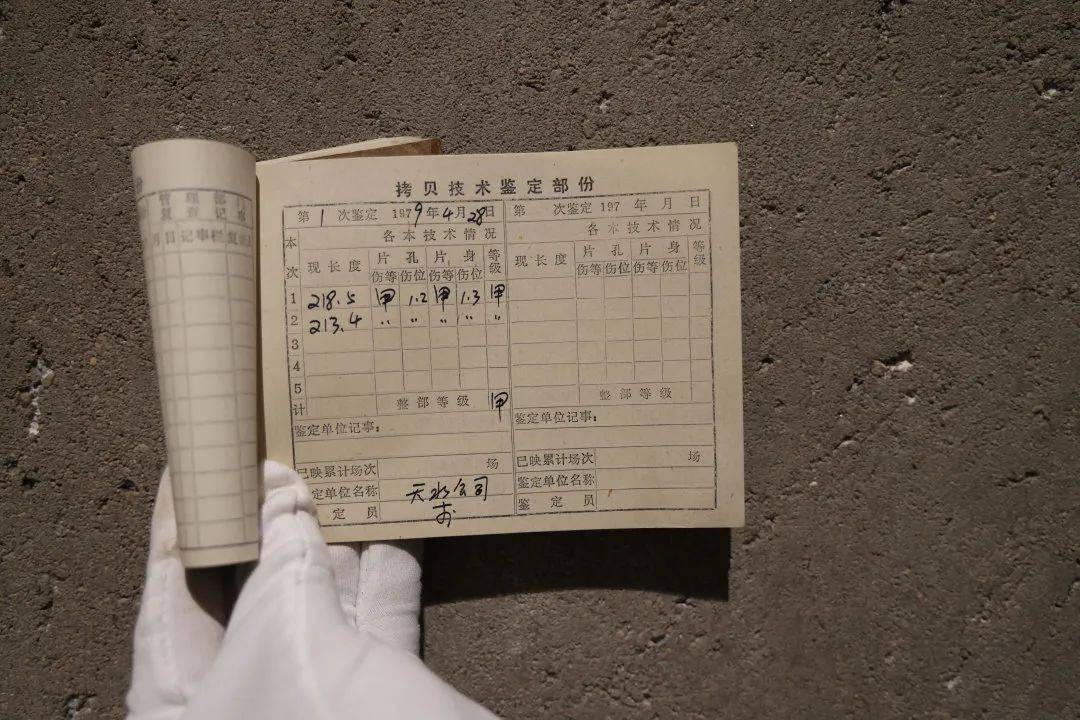 管理部门
复查记事
月日记事栏复
拷贝技术鉴定部份
第1次鉴定 1979年4月28日 第 次鉴定 197 年 月 日
本次 各本技术情况 各本技术情况
现长度 片孔 片身 等级 现长度 片孔 片身 等级
伤等 伤位 伤等 伤位 伤等 伤位 伤等 伤位
1 218.5 甲 1.2 甲 1.3 甲
2 213.4 〃 〃 〃 〃 〃
3
4
5
计 整部等级 甲 整部等级
鉴定单位记事: 鉴定单位记事:
已映累计场次 场 已映累计场次 场
定单位名称 天水公司 鉴定单位名称
定员 鉴定员